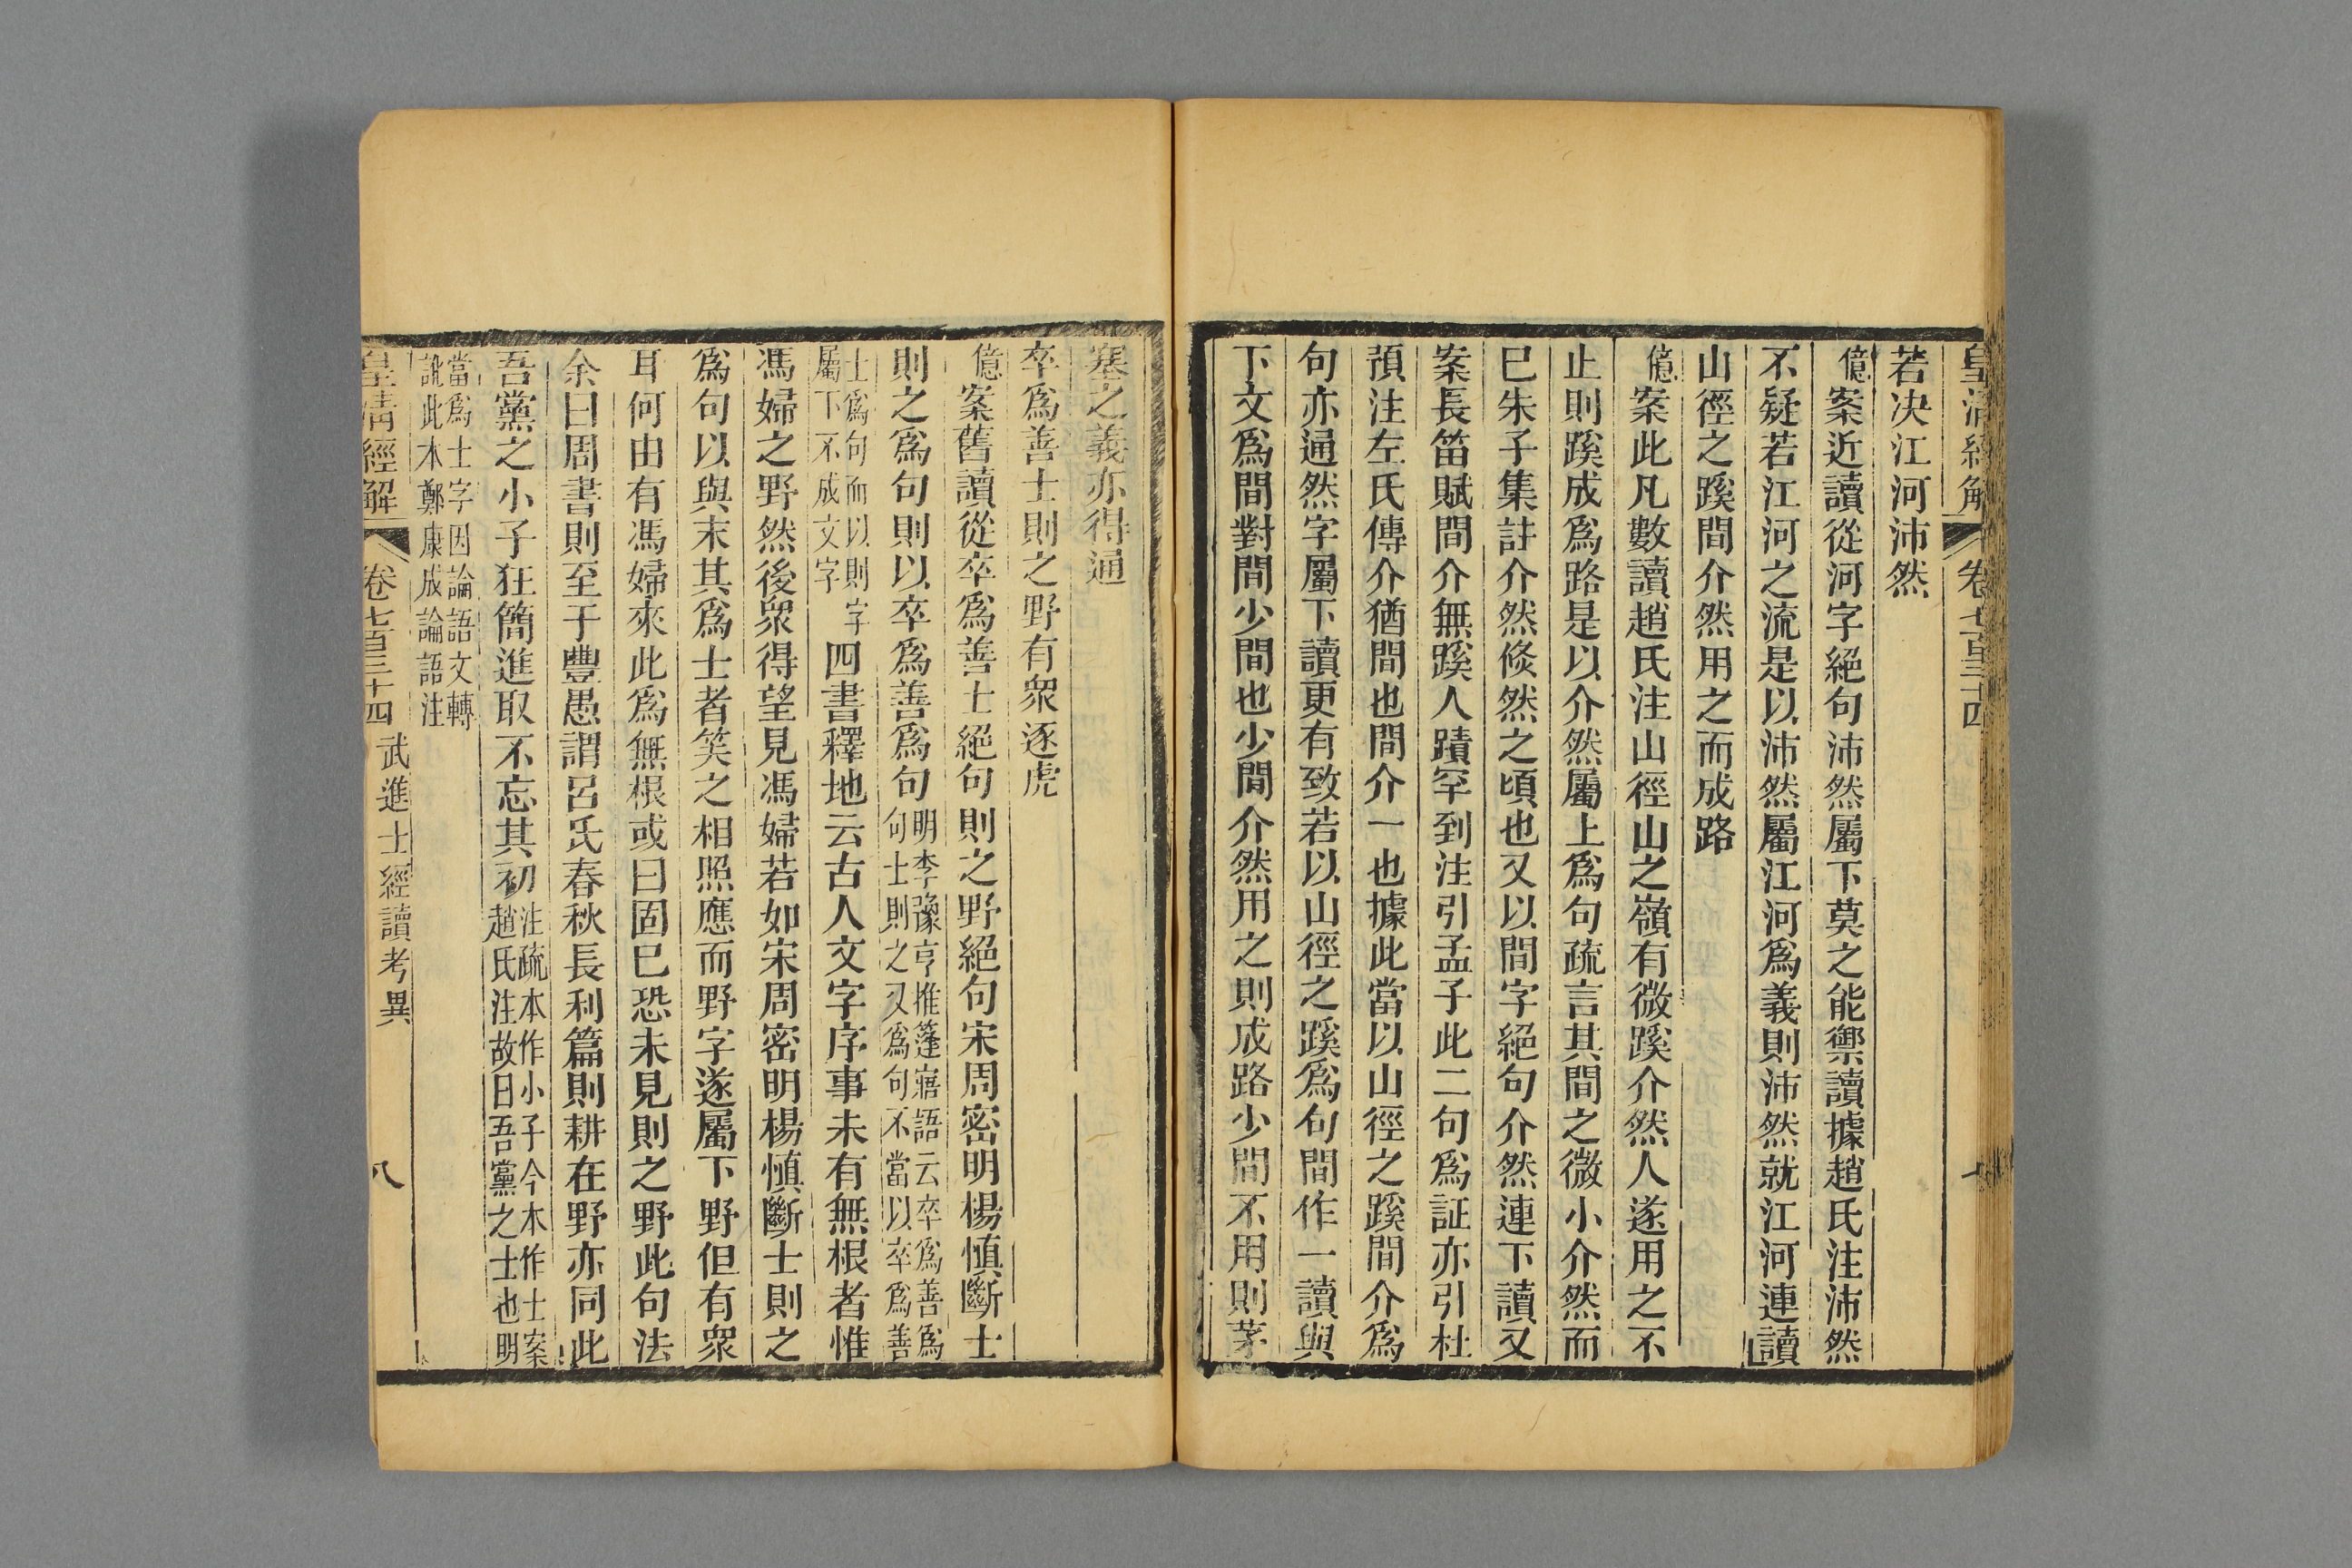 皇清經解 卷七百三十四
若決江河沛然
億案近讀從河字絕句沛然屬下莫之能禦讀據趙氏注沛然
不疑若江河之流是以沛然屬江河爲義則沛然就江河連讀
山徑之蹊間介然用之而成路
億案此凡數讀趙氏注山徑山之嶺有微蹊介然人遂用之不
止則蹊成爲路是以介然屬上爲句疏言其間之微小介然而
已朱子集註介然倏然之頃也又以間字絕句介然連下讀又
案長笛賦間介無蹊人蹟罕到注引孟子此二句爲証亦引杜
預注左氏傳介猶間也間介一也據此當以山徑之蹊間介爲
句亦通然字屬下讀更有致若以山徑之蹊爲句間作一讀與
下文爲間對間少間也少間介然用之則成路少間不用則茅
塞之義亦得通
卒爲善士則之野有衆逐虎
億案舊讀從卒爲善士絕句則之野絕句宋周密明楊慎斷士
則之爲句則以卒爲善爲句明李豫亨推篷寤語云卒爲善爲
句士則之又爲句不當以卒爲善
士爲句而以則字
屬下不成文字四書釋地云古人文字序事未有無根者惟
馮婦之野然後衆得望見馮婦若如宋周密明楊慎斷士則之
爲句以與末其爲士者笑之相照應而野字遂屬下野但有衆
耳何由有馮婦來此爲無根或曰固已恐未見則之野此句法
余曰周書則至于豐愚謂呂氏春秋長利篇則耕在野亦同此
吾黨之小子狂簡進取不忘其初注疏本作小子今本作士案
趙氏注故曰吾黨之士也明
當爲士字因論語文轉
訛此本鄭康成論語注
皇清經解 卷七百三十四 武進士經讀考異 八